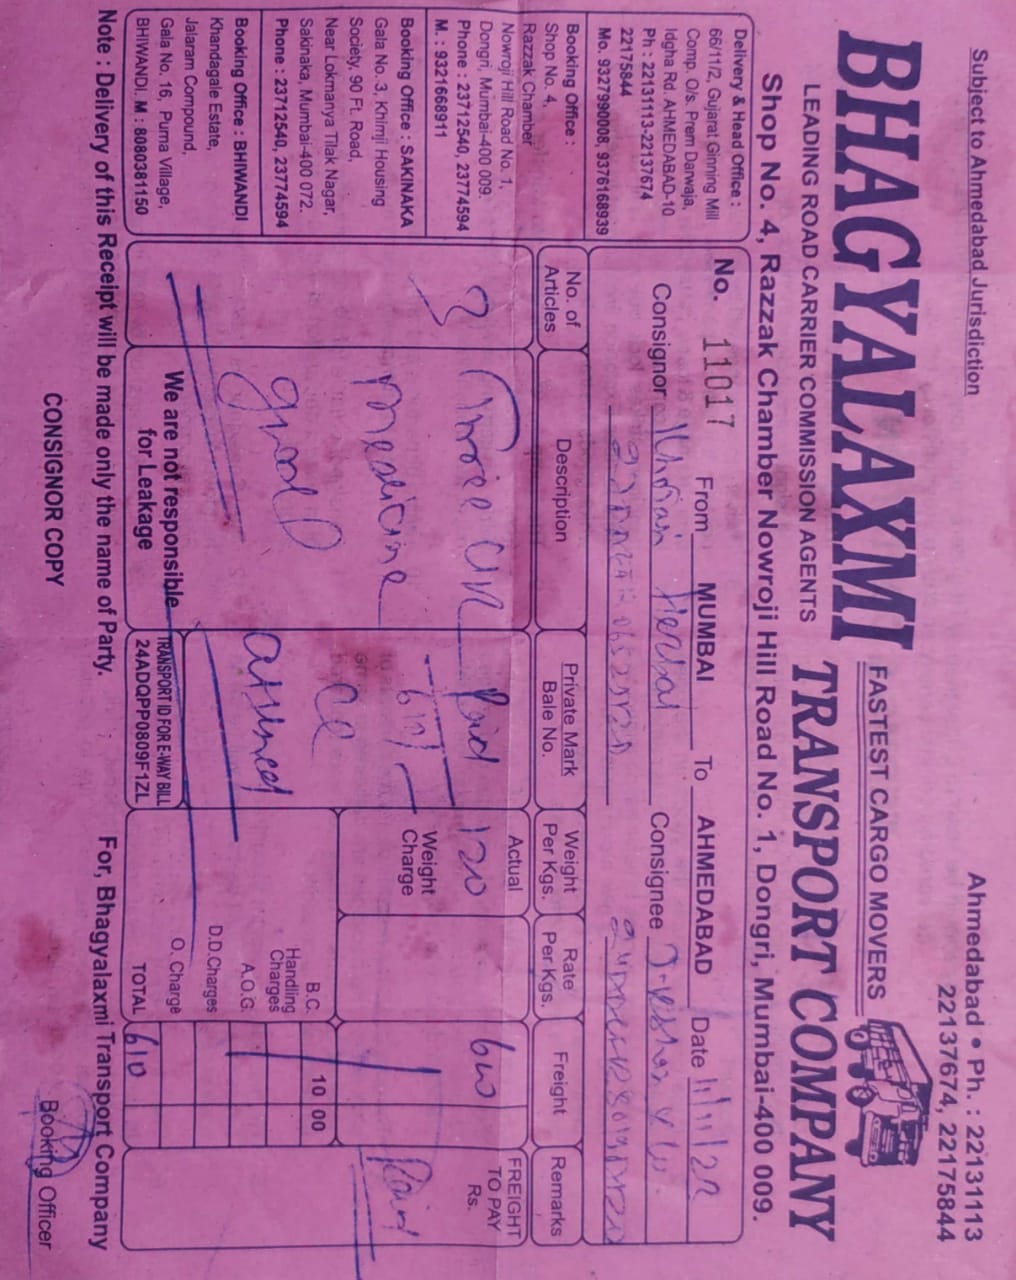 Subject to Ahmedabad Jurisdiction
Ahmedabad • Ph. : 22131113
22137674, 22175844
BHAGYALAXMI
FASTEST CARGO MOVERS
TRANSPORT COMPANY
LEADING ROAD CARRIER COMMISSION AGENTS
Shop No. 4, Razzak Chamber Nowroji Hill Road No. 1, Dongri, Mumbai-400 009.
Delivery & Head Office :
66/11/2, Gujarat Ginning Mill
Comp. O/s. Prem Darwaja,
Idgha Rd. AHMEDABAD-10
Ph : 22131113-22137674
22175844
Mo. 9327990008, 9376168939
Booking Office :
Shop No. 4,
Razzak Chamber
Nowroji Hill Road No. 1,
Dongri, Mumbai-400 009.
Phone : 23712540, 23774594
M. : 9321668911
Booking Office : SAKINAKA
Gala No. 3, Khimji Housing
Society, 90 Ft. Road,
Near Lokmanya Tilak Nagar,
Sakinaka, Mumbai-400 072.
Phone : 23712540, 23774594
Booking Office : BHIWANDI
Khandagale Estate,
Jalaram Compound,
Gala No. 16, Purna Village,
BHIWANDI. M : 8080381150
No. 11017 From MUMBAI To AHMEDABAD Date 11/11/22
Consignor Herbal Consignee
No. of Articles
Description
Private Mark Bale No.
Weight Per Kgs.
Rate Per Kgs.
Freight
Remarks
3
Three
Medicine
good
Paid
610/-
Actual
120
Weight Charge
600
FREIGHT TO PAY Rs.
Paid
B.C. 10 00
Handling Charges
A.O.G.
D.D.Charges
O. Charge
TOTAL 610
We are not responsible for Leakage
TRANSPORT ID FOR E-WAY BILL
24ADQPP0809F1ZL
Note : Delivery of this Receipt will be made only the name of Party.
For, Bhagyalaxmi Transport Company
CONSIGNOR COPY
Booking Officer